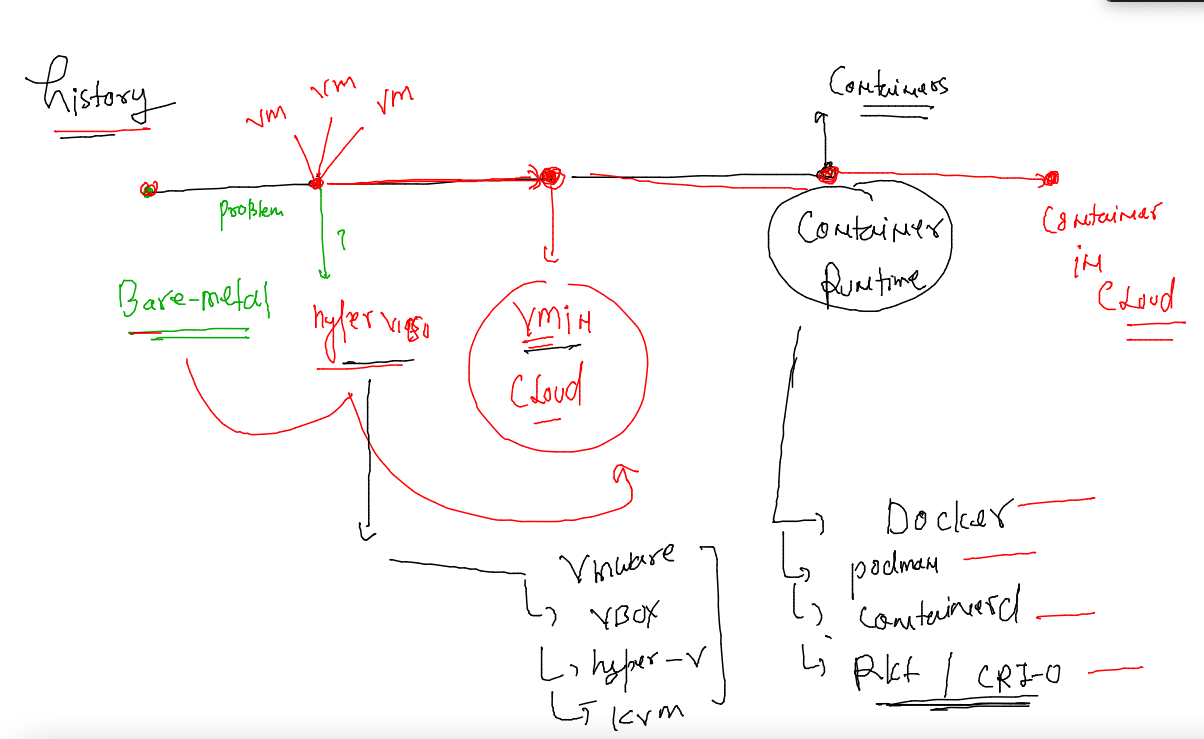 history
vm
vm
vm
Containers
problem
?
Bare-metal
hypervisor
VM in
Cloud
Container
Runtime
Container
in
Cloud
Vmware
VBOX
hyper-V
KVM
Docker
podman
containerd
Rkt / CRI-O